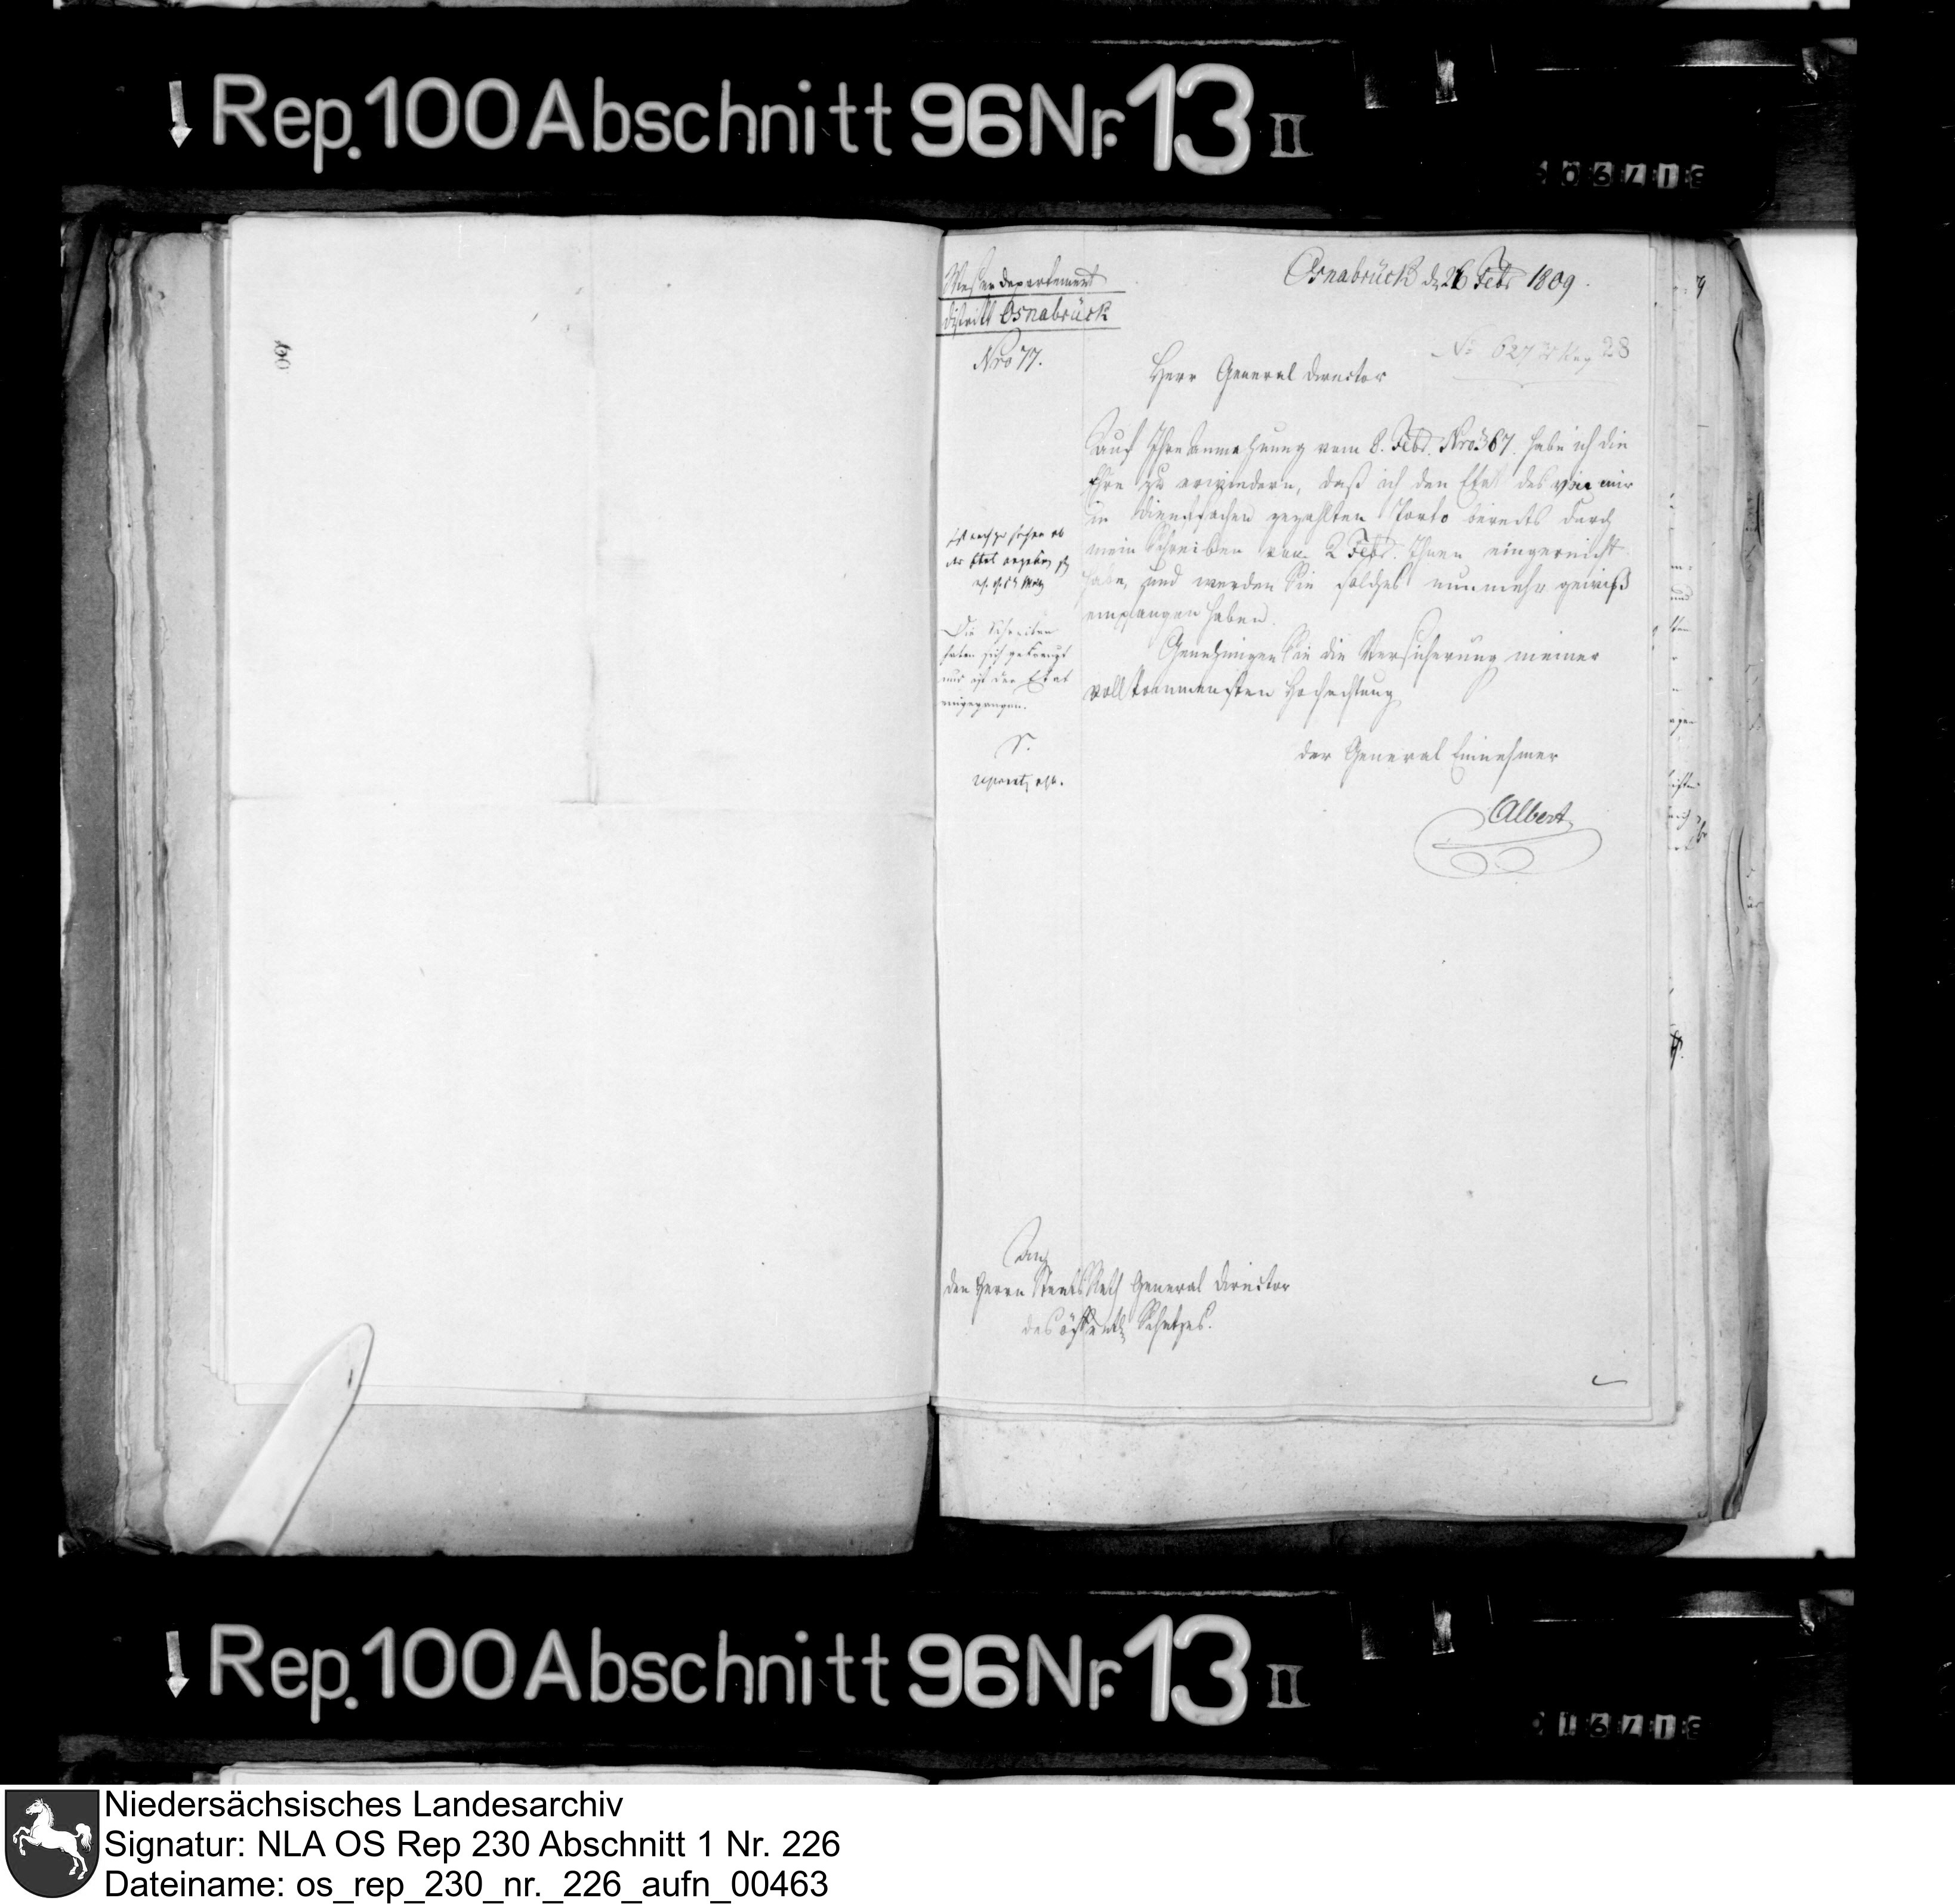 Rep. 100 Abschnitt 96 Nr. 13 II
Weser departement
District Osnabrück
Nro 77.
Osnabrück d. 26 Febr 1809.
No 627
28
Herr General Director
Auf Ihre Anmahnung vom 8. Febr. Nro 367. habe ich die
Ehre zu erwiedern, daß ich den Etat des von mir
in Dienstsachen gezahlten Porto bereits durch
mein Schreiben vom 2 Febr. Ihnen eingereicht
habe, und werden Sie solches nunmehr gewiß
empfangen haben.
Genehmigen Sie die Versicherung meiner
vollkommensten Hochachtung
der General Einnehmer
Albert
ist nachzusehen ob
der Etat
Die Schreiben
haben sich gekreuzt
und ist der Etat
eingegangen.
An
den Herrn Staats Rath General Director
des öffentl. Schatzes.
Rep. 100 Abschnitt 96 Nr. 13 II
Niedersächsisches Landesarchiv
Signatur: NLA OS Rep 230 Abschnitt 1 Nr. 226
Dateiname: os_rep_230_nr._226_aufn_00463